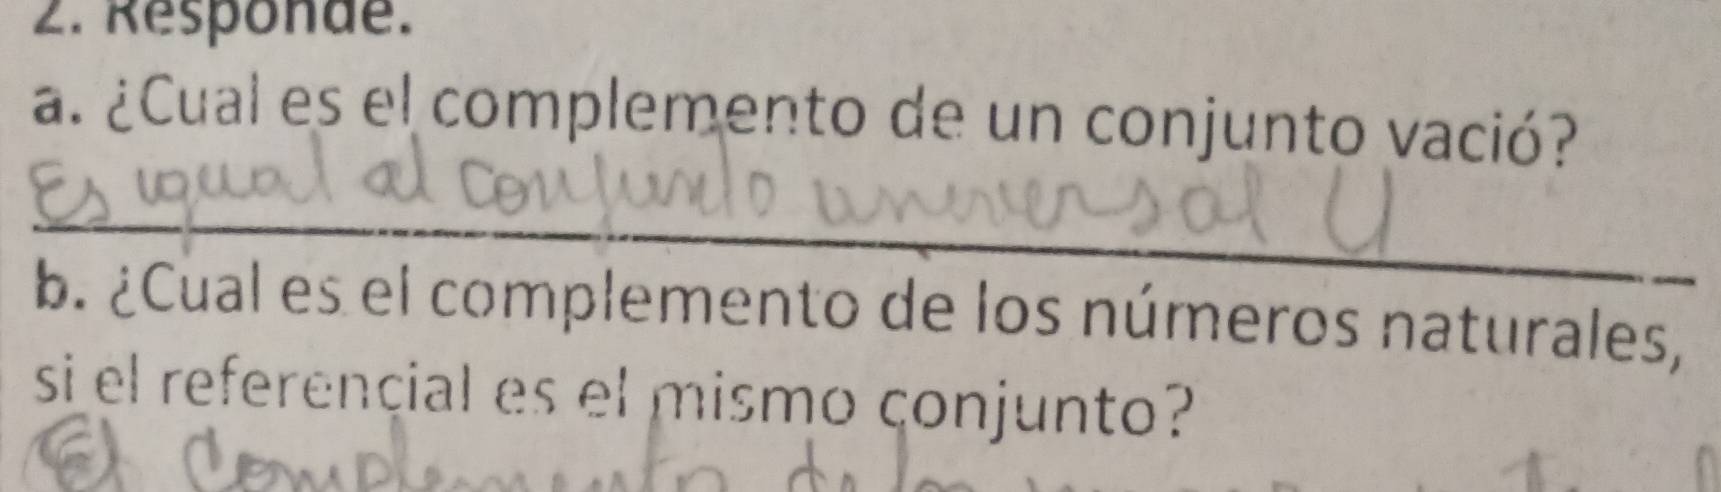 2. Responde.
a. ¿Cual es el complemento de un conjunto vació?
Es igual al conjunto universal U
b. ¿Cual es el complemento de los números naturales,
si el referencial es el mismo conjunto?
El Complemento de los